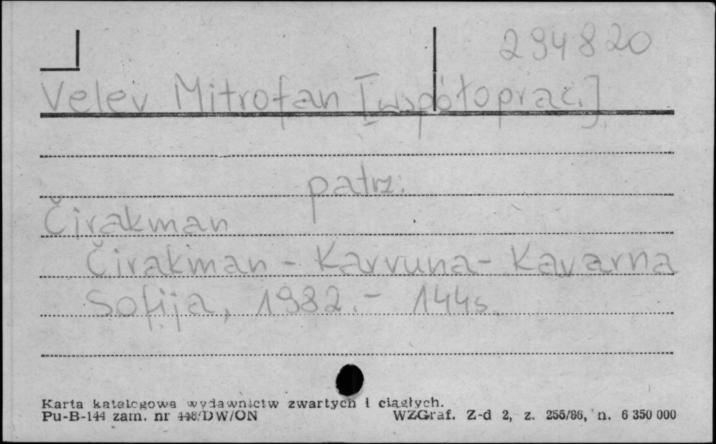 294820
Velev Mitrofan [współoprac.]
patrz:
Čirakman
Čirakman - Karvuna - Kavarna
Sofija, 1982. - 144s.
Karta katalogowa wydawnictw zwartych i ciągłych.
Pu-B-144 zam. nr 448/DW/ON WZGraf. Z-d 2, z. 255/86, n. 6 350 000